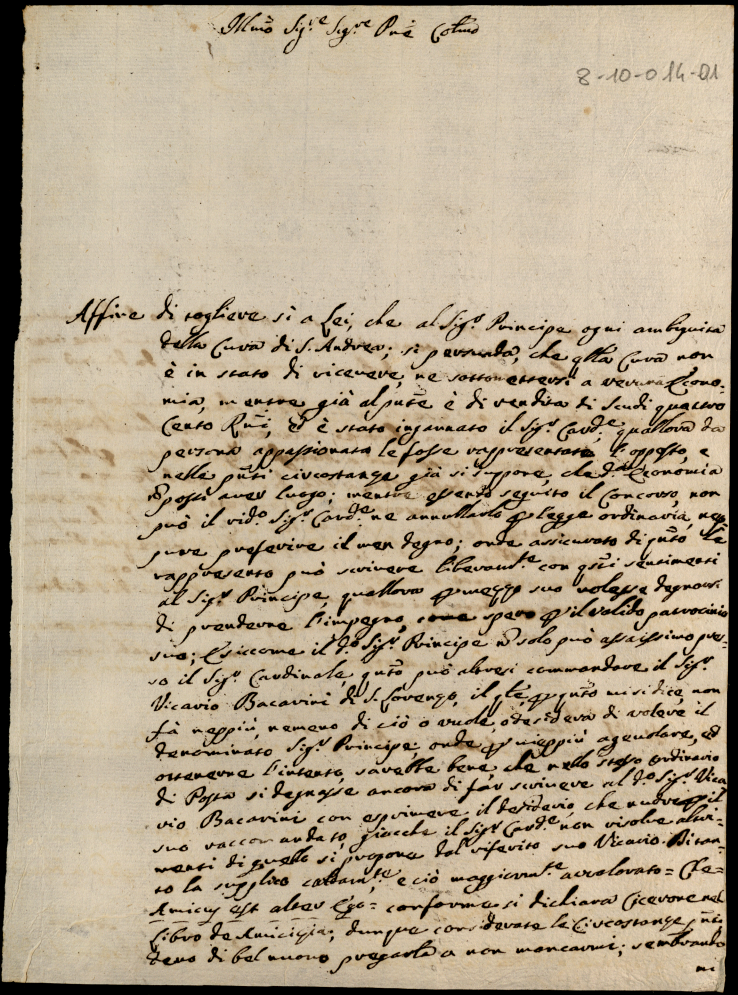 Illmo Sigre Sigre Pne Colmo
8-10-014-01
Affine di togliere sì a Lei, che al Sigr Principe ogni ambiguità
della Cura di S. Andrea; si persuada, che qlla Cura non
è in stato di ricevere, ne sottomettersi a veruna Econo-
mia, mentre già al pnte è di rendita di Scudi quattro
Cento Rni, ed è stato ingannato il Sigr Carde, quallora da
persona appassionata le fosse rappresentato l'opposto, e
nelle pnti circostanze già si suppone, che da Economia
possi aver luogo; mentre essendo seguito il Concorso, non
può il rido Sigr Carde ne annullarlo legge ordinaria, nep-
pure preferire il men degno; onde assicurato di qnto Le
rappresento può scrivere liberamte con qsti sentimenti
al Sigr Principe, quallora mezzo suo volesse degnarsi
di prenderne l'impegno, come spero il valido patrocinio
suo; E siccome il do Sigr Principe solo può assaissimo pres-
so il Sigr Cardinale, qnto può altresì commandare il Sigr
Vicario Bacarini di S. Lorenzo, il qle, qnto mi si dice, non
fà neppiù, nemeno di ciò o vuole, o desidera di volere il
denominato Sigr Principe, onde vieppiù agevolare, ed
ottenerne l'intento, sarebbe bene che nello stesso ordinario
di Posta si degnasse ancora di far scrivere al do Sigr Vica-
rio Bacarini con esprimere il desiderio, che nudre il
suo raccomandato, giacche il Sigr Carde non risolve altri-
menti di quello si propone dal riferito suo Vicario. Di tan-
to la supplico caldamte, e ciò maggiormte avvalorato = Che =
Amicus est alter Ego = conforme si dichiara Cicerone nel
Libro de Amicizia; dunque considerate le Circostanze pnti
devo di bel nuovo pregarla a non mancarmi; sembrando
mi